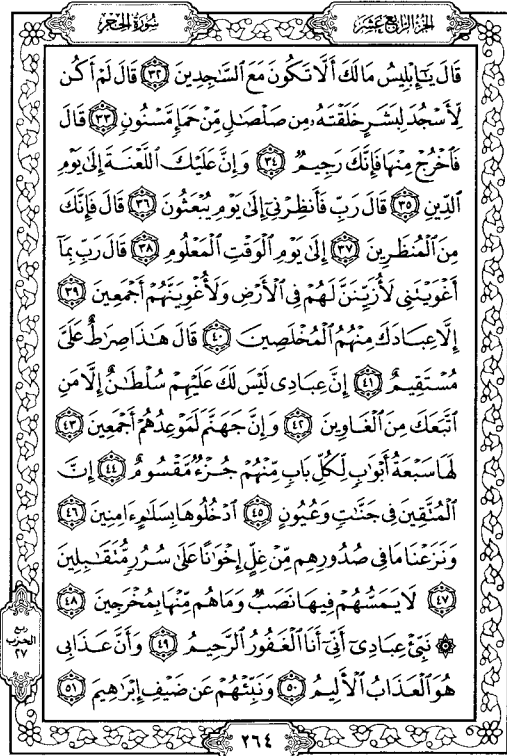 سُورَةُ الحِجْرِ
الجزء الرابع عشر
قَالَ يَٰٓإِبۡلِيسُ مَالَكَ أَلَّا تَكُونَ مَعَ ٱلسَّٰجِدِينَ ٣٢ قَالَ لَمۡ أَكُن
لِّأَسۡجُدَ لِبَشَرٍ خَلَقۡتَهُۥ مِن صَلۡصَٰلٖ مِّنۡ حَمَإٖ مَّسۡنُونٖ ٣٣ قَالَ
فَٱخۡرُجۡ مِنۡهَا فَإِنَّكَ رَجِيمٞ ٣٤ وَإِنَّ عَلَيۡكَ ٱللَّعۡنَةَ إِلَىٰ يَوۡمِ
ٱلدِّينِ ٣٥ قَالَ رَبِّ فَأَنظِرۡنِيٓ إِلَىٰ يَوۡمِ يُبۡعَثُونَ ٣٦ قَالَ فَإِنَّكَ
مِنَ ٱلۡمُنظَرِينَ ٣٧ إِلَىٰ يَوۡمِ ٱلۡوَقۡتِ ٱلۡمَعۡلُومِ ٣٨ قَالَ رَبِّ بِمَآ
أَغۡوَيۡتَنِي لَأُزَيِّنَنَّ لَهُمۡ فِي ٱلۡأَرۡضِ وَلَأُغۡوِيَنَّهُمۡ أَجۡمَعِينَ ٣٩
إِلَّا عِبَادَكَ مِنۡهُمُ ٱلۡمُخۡلَصِينَ ٤٠ قَالَ هَٰذَا صِرَٰطٌ عَلَيَّ
مُسۡتَقِيمٌ ٤١ إِنَّ عِبَادِي لَيۡسَ لَكَ عَلَيۡهِمۡ سُلۡطَٰنٌ إِلَّا مَنِ
ٱتَّبَعَكَ مِنَ ٱلۡغَاوِينَ ٤٢ وَإِنَّ جَهَنَّمَ لَمَوۡعِدُهُمۡ أَجۡمَعِينَ ٤٣
لَهَا سَبۡعَةُ أَبۡوَٰبٖ لِّكُلِّ بَابٖ مِّنۡهُمۡ جُزۡءٞ مَّقۡسُومٌ ٤٤ إِنَّ
ٱلۡمُتَّقِينَ فِي جَنَّٰتٖ وَعُيُونٍ ٤٥ ٱدۡخُلُوهَا بِسَلَٰمٍ ءَامِنِينَ ٤٦
وَنَزَعۡنَا مَا فِي صُدُورِهِم مِّنۡ غِلٍّ إِخۡوَٰنًا عَلَىٰ سُرُرٖ مُّتَقَٰبِلِينَ
٤٧ لَا يَمَسُّهُمۡ فِيهَا نَصَبٞ وَمَا هُم مِّنۡهَا بِمُخۡرَجِينَ ٤٨
۞ نَبِّئۡ عِبَادِيٓ أَنِّيٓ أَنَا ٱلۡغَفُورُ ٱلرَّحِيمُ ٤٩ وَأَنَّ عَذَابِي
هُوَ ٱلۡعَذَابُ ٱلۡأَلِيمُ ٥٠ وَنَبِّئۡهُمۡ عَن ضَيۡفِ إِبۡرَٰهِيمَ ٥١
ربع
الحزب
٢٧
٢٦٤